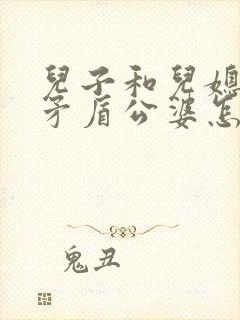 兒子和兒媳
矛盾公婆怎
鬼丑